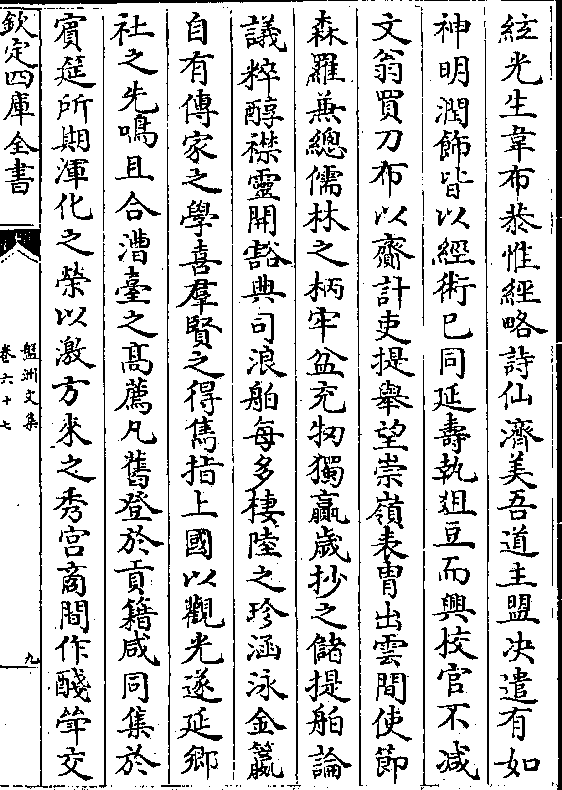 絃光生韋布恭惟經略詩仙濟美吾道主盟决遣有如
神明潤飾皆以經術已同延壽執俎豆而興挍官不減
文翁買刀布以齎計吏提舉望崇嶺表胄出雲間使節
森羅兼總儒林之柄牢盆充牣獨贏歳抄之儲提舶論
議粹醇襟靈開豁典司浪舶每多棲陸之珍涵泳金籯
自有傳家之學喜羣賢之得雋指上國以觀光遂延鄉
社之先鳴且合漕臺之髙薦凡舊登於貢籍咸同集於
賓筵所期渾化之榮以激方來之秀宮商間作酸斝交
欽定四庫全書
盤洲文集
卷六十七
九